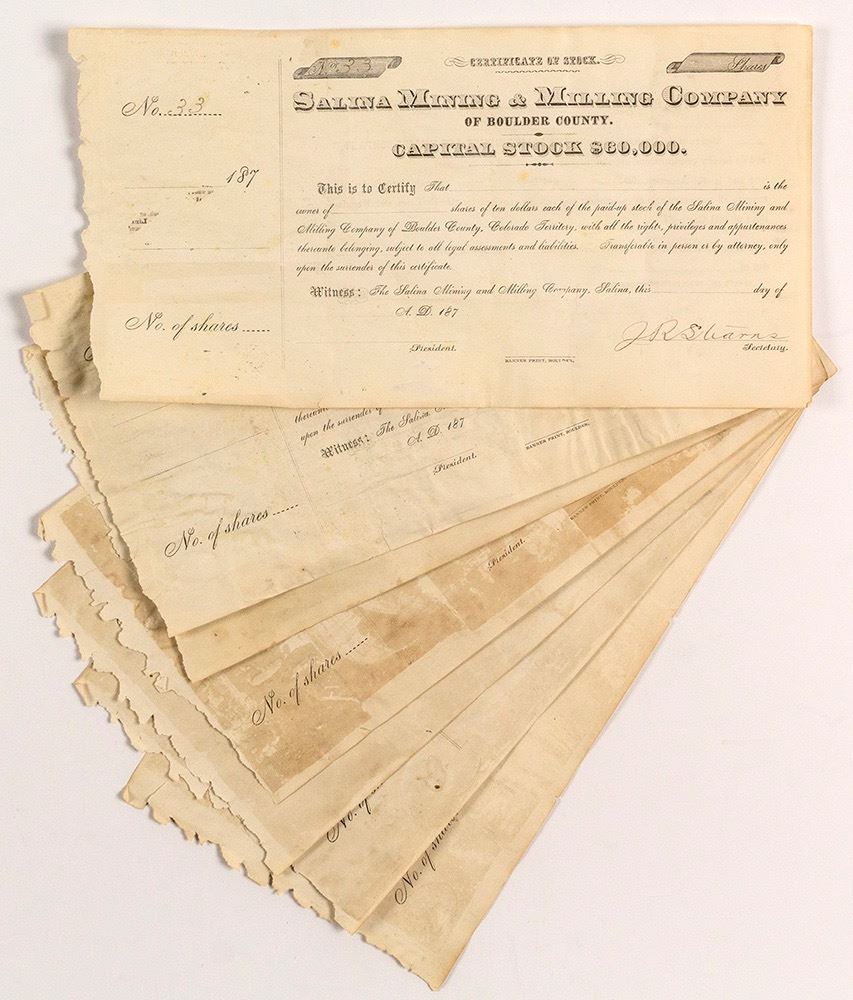 No. 33
187
No. of shares ......
No. 33
CERTIFICATE OF STOCK.
Shares
SALINA MINING & MILLING COMPANY
OF BOULDER COUNTY.
CAPITAL STOCK $60,000.
This is to Certify That is the
owner of shares of ten dollars each of the paid-up stock of the Salina Mining and
Milling Company of Boulder County, Colorado Territory, with all the rights, privileges and appurtenances
thereunto belonging, subject to all legal assessments and liabilities. Transferable in person or by attorney, only
upon the surrender of this certificate.
Witness: The Salina Mining and Milling Company, Salina, this day of
A. D. 187
J R Stearns
President. Secretary.
BANNER PRINT, BOULDER.
upon the surrender of
Witness: The Salina
A. D. 187
President.
BANNER PRINT, BOULDER.
No. of shares ......
President.
BANNER PRINT, BOULDER
No. of shares ......
No. of
No. of shares